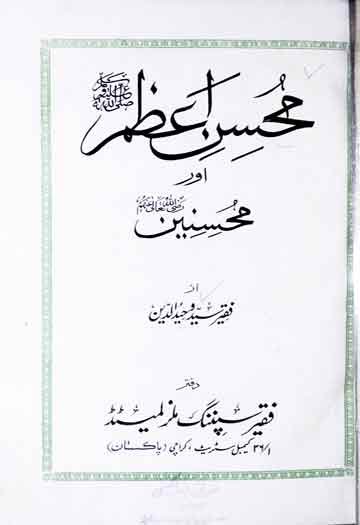 محسنِ اعظم ﷺ
اور
محسنین رضی اللہ تعالیٰ عنہم
از
فقیر سید وحید الدین
دفتر
فقیر سپننگ ملز لمیٹڈ
۳۶/۱ کیمبل سٹریٹ ، کراچی (پاکستان)